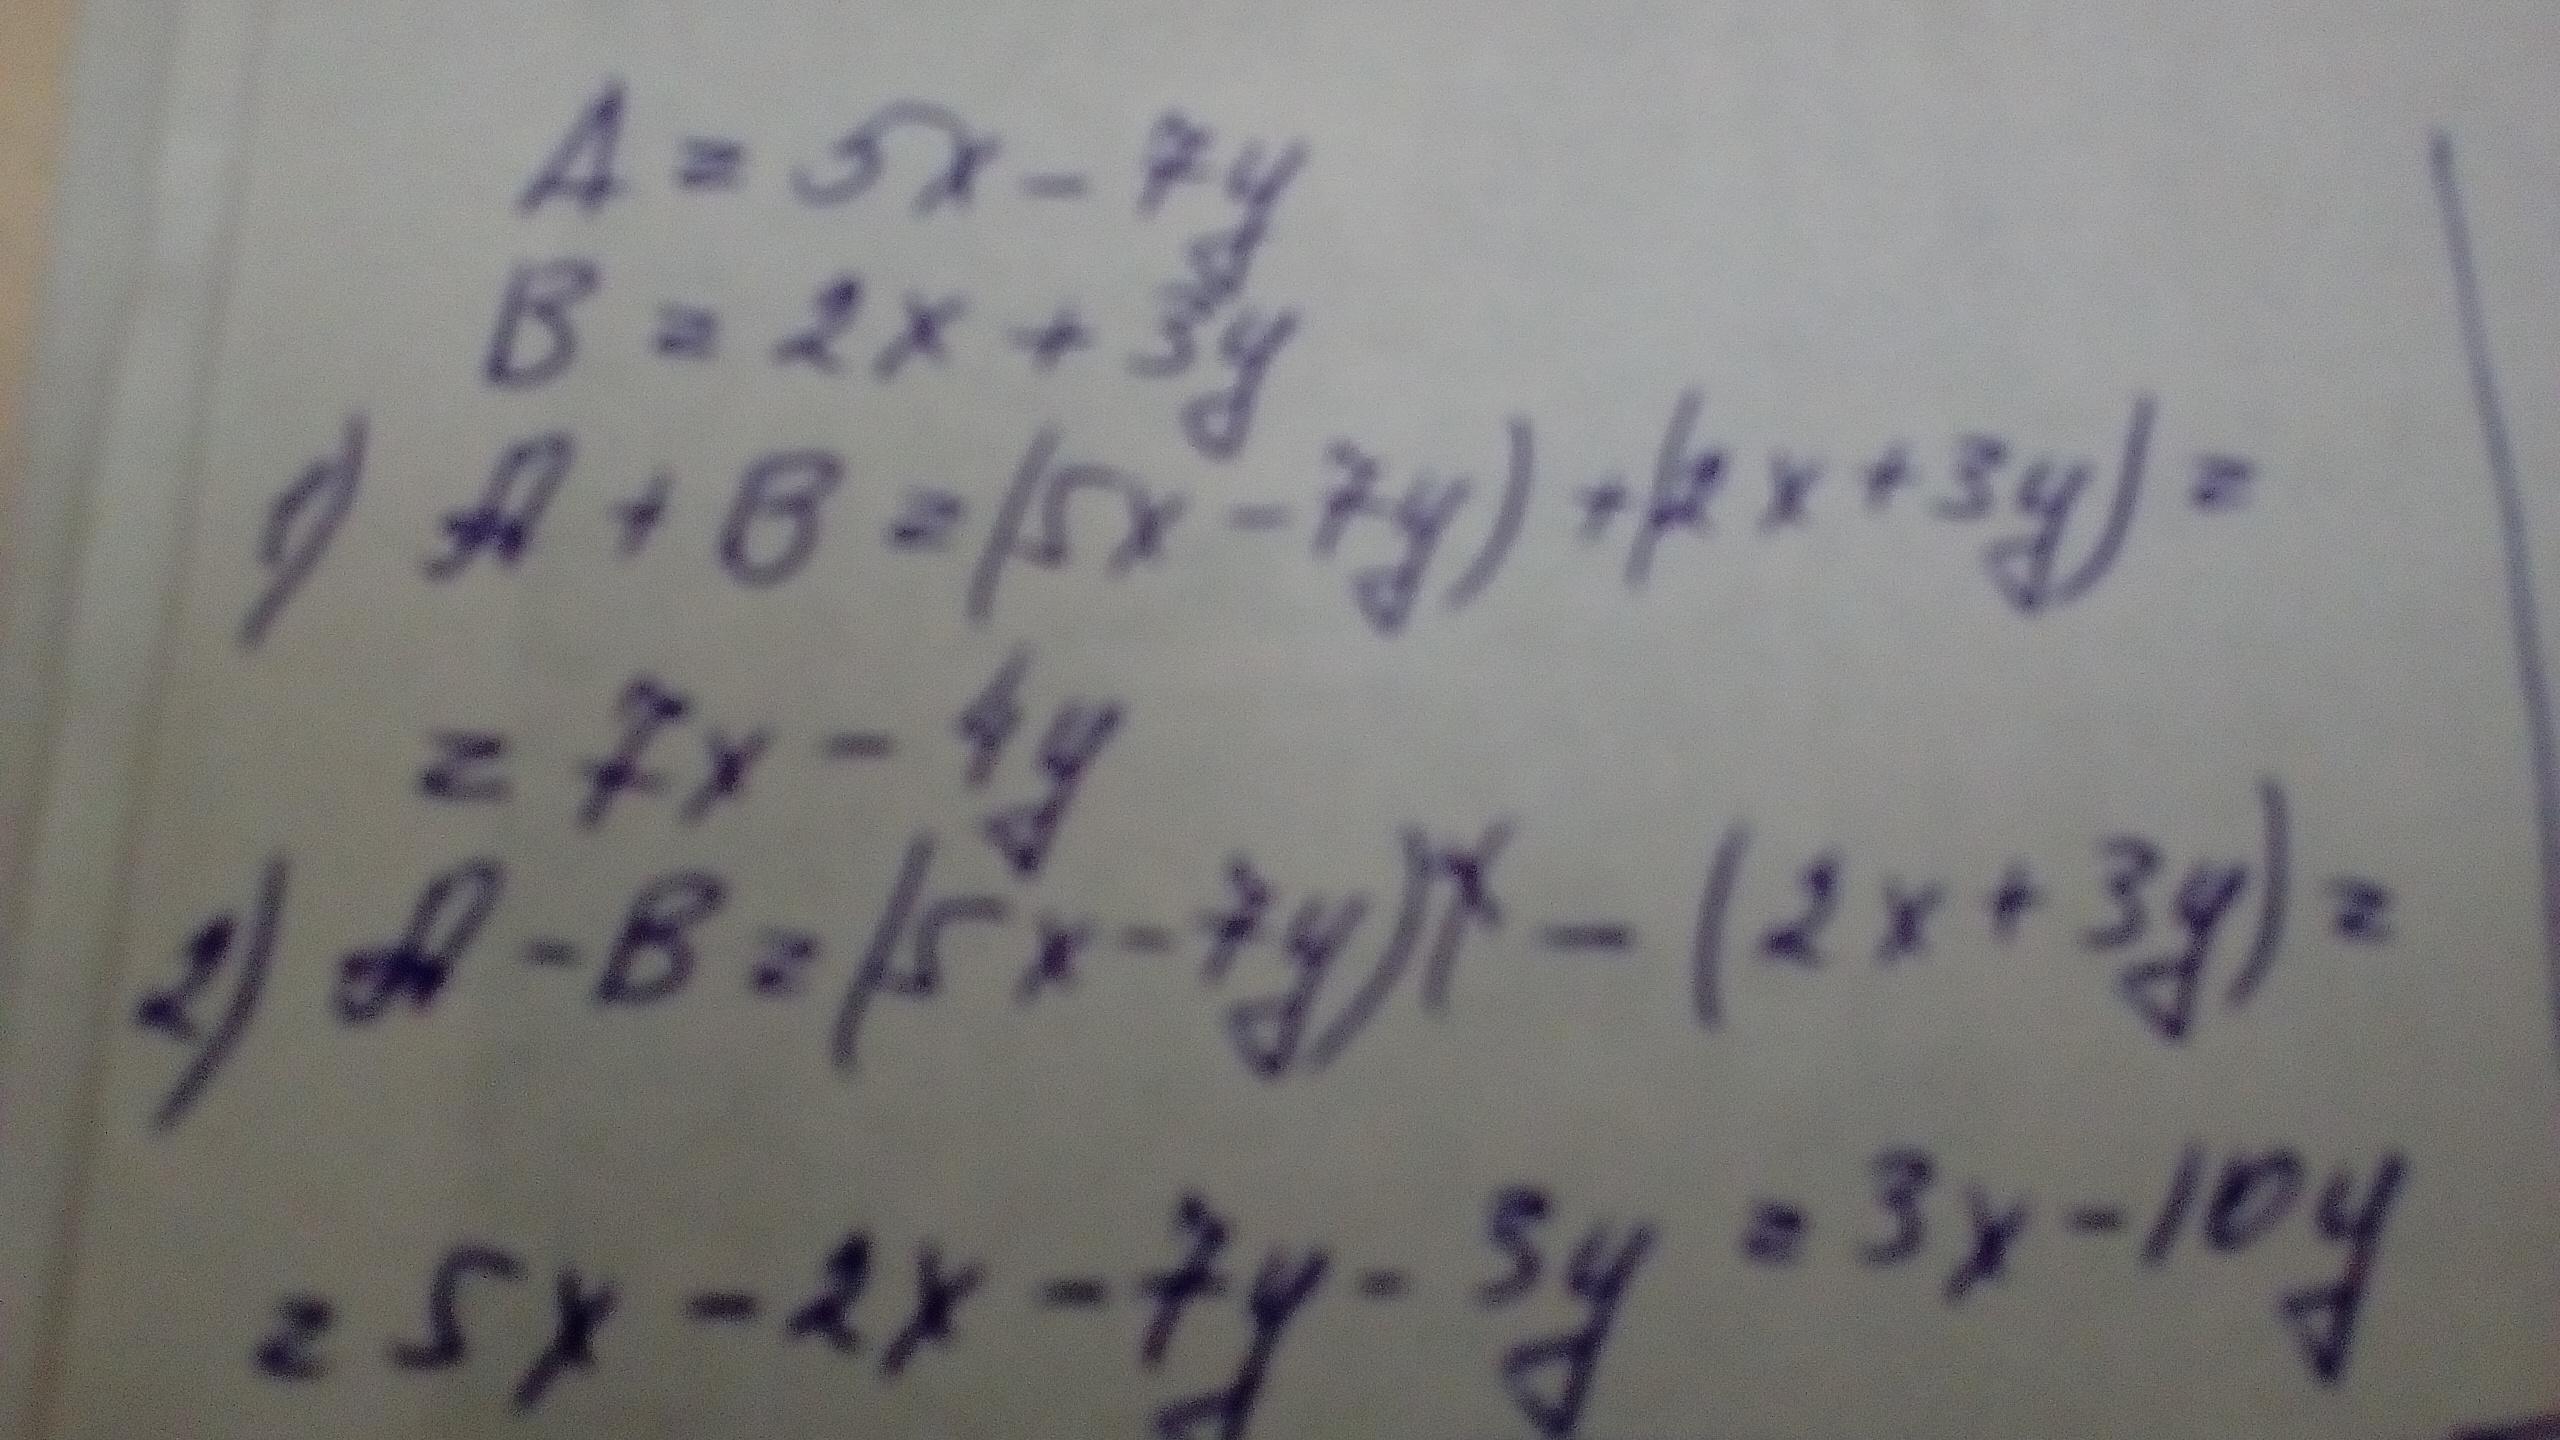 A = 5x - 7y
B = 2x + 3y
1) A + B = (5x - 7y) + (2x + 3y) =
= 7x - 4y
2) A - B = (5x - 7y) - (2x + 3y) =
= 5x - 2x - 7y - 3y = 3x - 10y